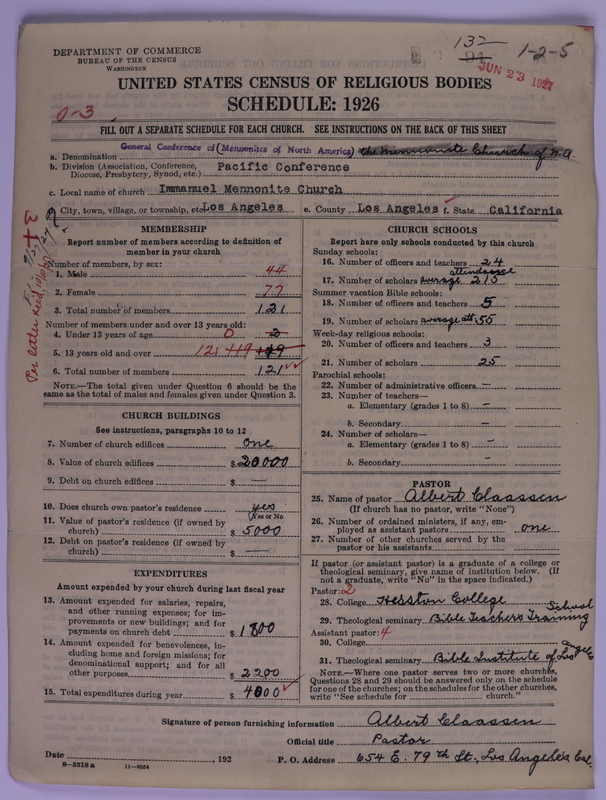 DEPARTMENT OF COMMERCE
BUREAU OF THE CENSUS
WASHINGTON
132
1-2-5
JUN 23 1927
UNITED STATES CENSUS OF RELIGIOUS BODIES
SCHEDULE: 1926
0-3
FILL OUT A SEPARATE SCHEDULE FOR EACH CHURCH. SEE INSTRUCTIONS ON THE BACK OF THIS SHEET
General Conference of (Mennonites of North America)
a. Denomination the Mennonite Church of N.A.
b. Division (Association, Conference, Diocese, Presbytery, Synod, etc.) Pacific Conference
c. Local name of church Immanuel Mennonite Church
City, town, village, or township, etc. Los Angeles e. County Los Angeles f. State California
MEMBERSHIP
Report number of members according to definition of
member in your church
Number of members by sex:
1. Male 44
2. Female 77
3. Total number of members 121
Number of members under and over 13 years old:
4. Under 13 years of age 0 2
5. 13 years old and over 121 119 119
6. Total number of members 121
NOTE.—The total given under Question 6 should be the
same as the total of males and females given under Question 3.
CHURCH BUILDINGS
See instructions, paragraphs 10 to 12
7. Number of church edifices one
8. Value of church edifices $20000
9. Debt on church edifices $ —
10. Does church own pastor's residence yes
(Yes or No)
11. Value of pastor's residence (if owned by
church) $5000
12. Debt on pastor's residence (if owned by
church) $ —
EXPENDITURES
Amount expended by your church during last fiscal year
13. Amount expended for salaries, repairs,
and other running expenses; for im-
provements or new buildings; and for
payments on church debt $1800
14. Amount expended for benevolences, in-
cluding home and foreign missions; for
denominational support; and for all
other purposes $2200
15. Total expenditures during year $4000
CHURCH SCHOOLS
Report here only schools conducted by this church
Sunday schools:
16. Number of officers and teachers 24
17. Number of scholars average attendance 215
Summer vacation Bible schools:
18. Number of officers and teachers 5
19. Number of scholars average att. 55
Week-day religious schools:
20. Number of officers and teachers 3
21. Number of scholars 25
Parochial schools:
22. Number of administrative officers —
23. Number of teachers—
a. Elementary (grades 1 to 8) —
b. Secondary —
24. Number of scholars—
a. Elementary (grades 1 to 8) —
b. Secondary —
PASTOR
25. Name of pastor Albert Claassen
(If church has no pastor, write "None")
26. Number of ordained ministers, if any, em-
ployed as assistant pastors one
27. Number of other churches served by the
pastor or his assistants
If pastor (or assistant pastor) is a graduate of a college or
theological seminary, give name of institution below. (If
not a graduate, write "No" in the space indicated.)
Pastor: 2
28. College Hesston College
29. Theological seminary Bible Teachers Training School
Assistant pastor: 4
30. College
31. Theological seminary Bible Institute of Los Angeles
NOTE.—Where one pastor serves two or more churches,
Questions 28 and 29 should be answered only on the schedule
for one of the churches; on the schedules for the other churches,
write "See schedule for church."
Signature of person furnishing information Albert Claassen
Official title Pastor
Date , 192
P. O. Address 654 E. 79th St., Los Angeles, Cal.
8—5518a 11—9054